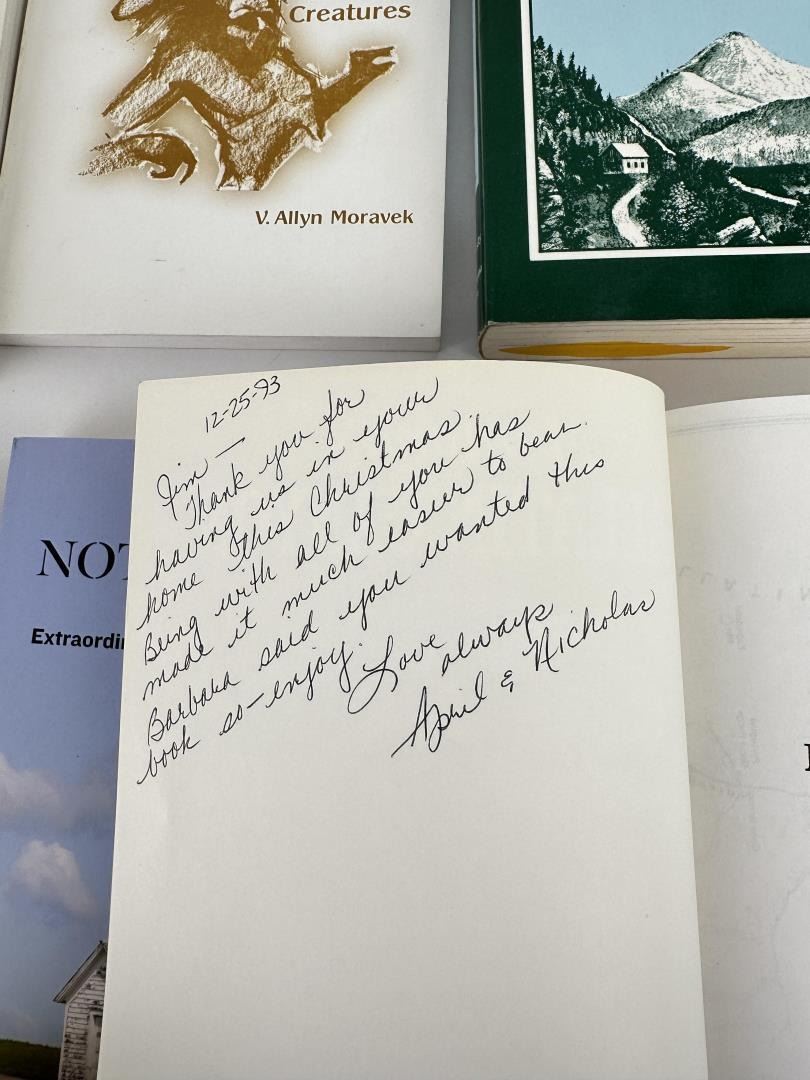 Creatures
V. Allyn Moravek
12-25-93
Jim —
Thank you for
having us in your
home this Christmas.
Being with all of you has
made it much easier to bear.
Barbara said you wanted this
book so-enjoy.
Love always
April & Nicholas
NOT
Extraordin